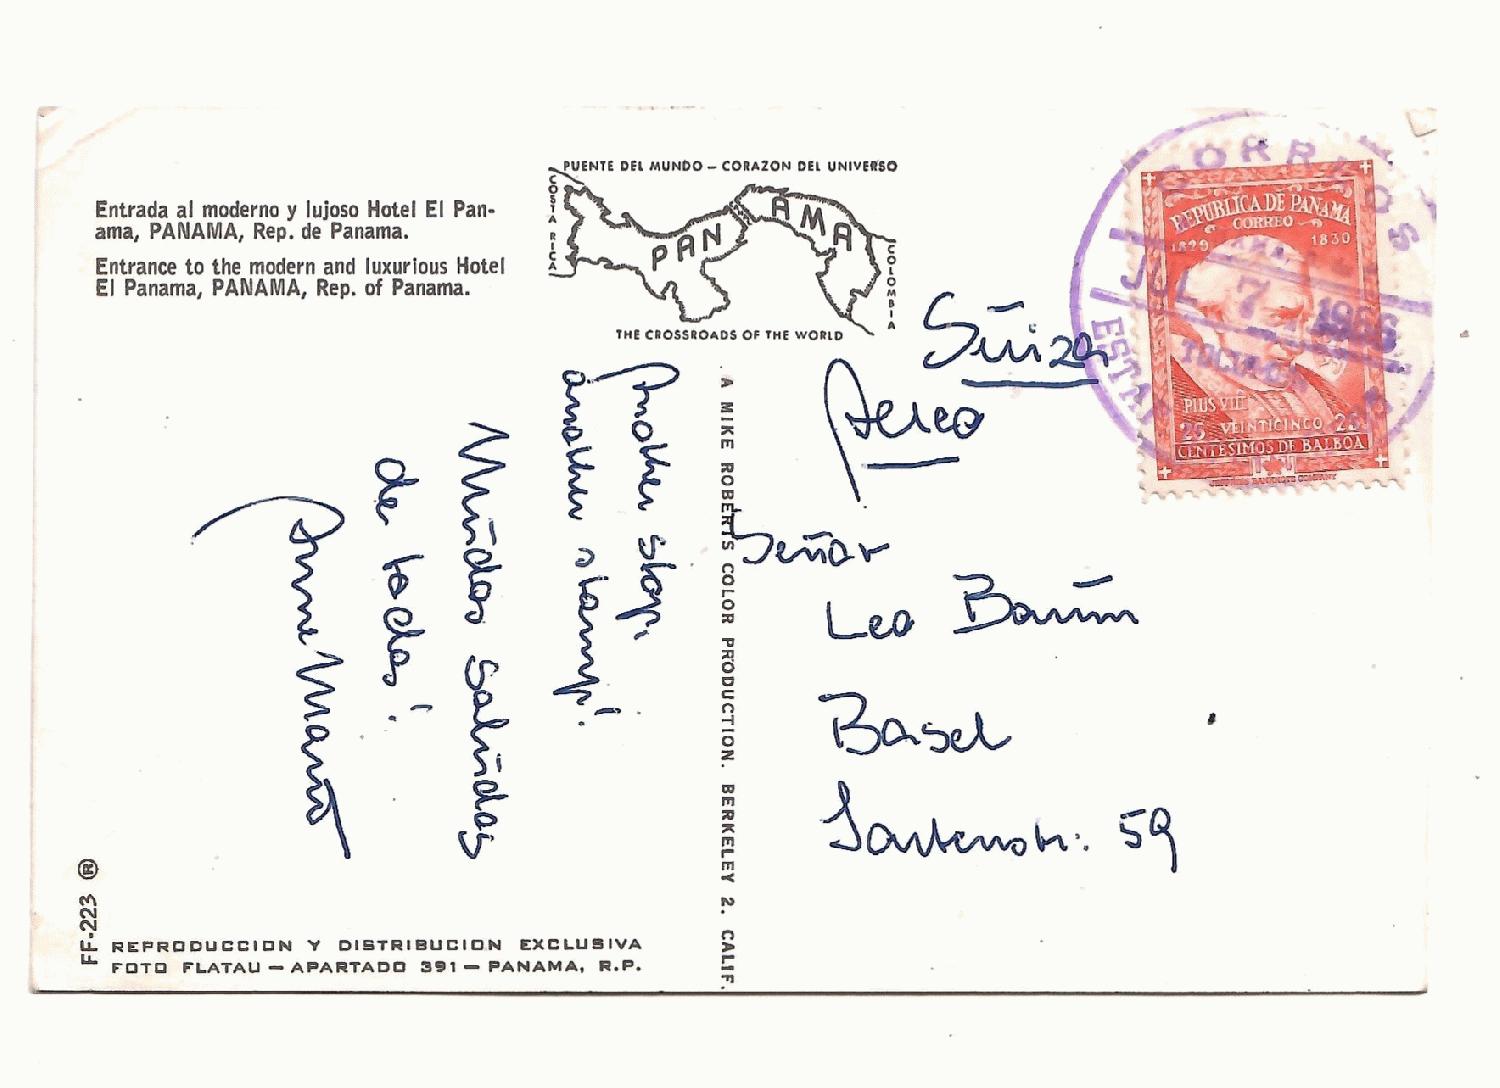 Entrada al moderno y lujoso Hotel El Pan-
ama, PANAMA, Rep. de Panama.
Entrance to the modern and luxurious Hotel
El Panama, PANAMA, Rep. of Panama.
PUENTE DEL MUNDO – CORAZON DEL UNIVERSO
COSTA RICA
PANAMA
COLOMBIA
THE CROSSROADS OF THE WORLD
CORREOS
JUL 7 1966
TOCUMEN
REPUBLICA DE PANAMA
CORREO
1829 1830
PIUS VIII
25 VEINTICINCO 25
CENTESIMOS DE BALBOA
Suiza
Aereo
Señor
Leo Baum
Basel
59
Another stop,
another stamp!
saludos
de todos!
A MIKE ROBERTS COLOR PRODUCTION. BERKELEY 2. CALIF.
FF-223 ®
REPRODUCCION Y DISTRIBUCION EXCLUSIVA
FOTO FLATAU – APARTADO 391 – PANAMA, R.P.